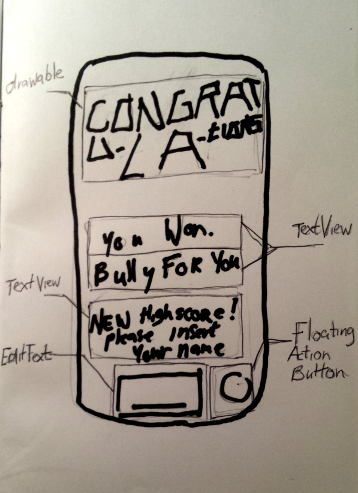 drawable
CONGRAT
U-LA-tions
You Won.
Bully For You
TextView
TextView
NEW Highscore!
Please Insert
Your name
EditText
Floating
Action
Button